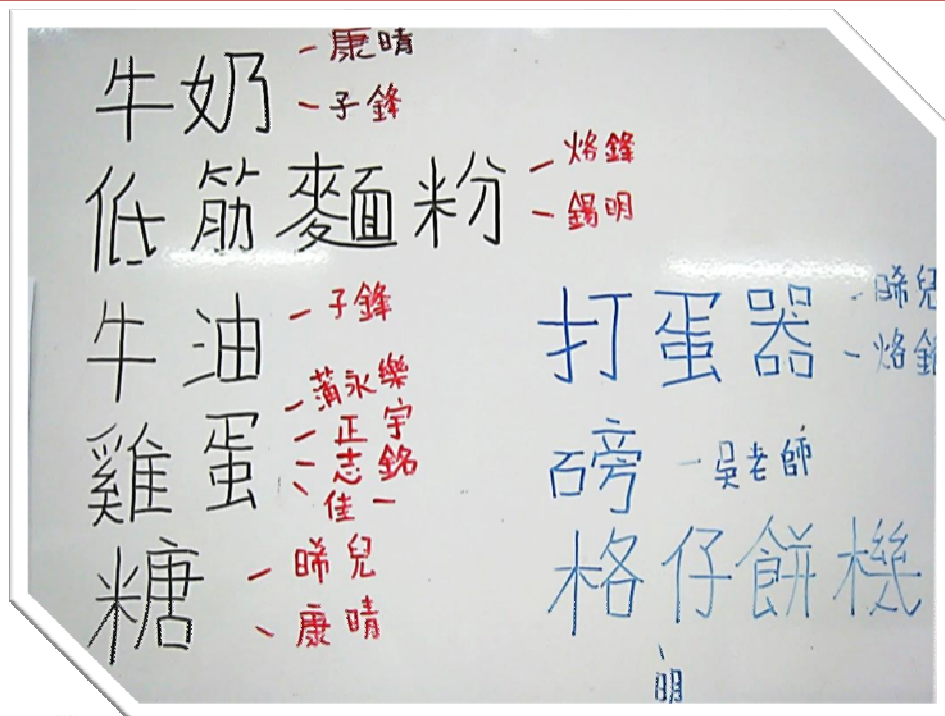 牛奶 - 康晴
- 子鋒
低筋麵粉 - 烙鋒
- 錫明
牛油 - 子鋒
雞蛋 - 蒲永樂
- 正宇
- 志銘
- 佳一
糖 - 晞兒
- 康晴
打蛋器 - 晞兒
- 烙
磅 - 吳老師
格仔餅機
- 明